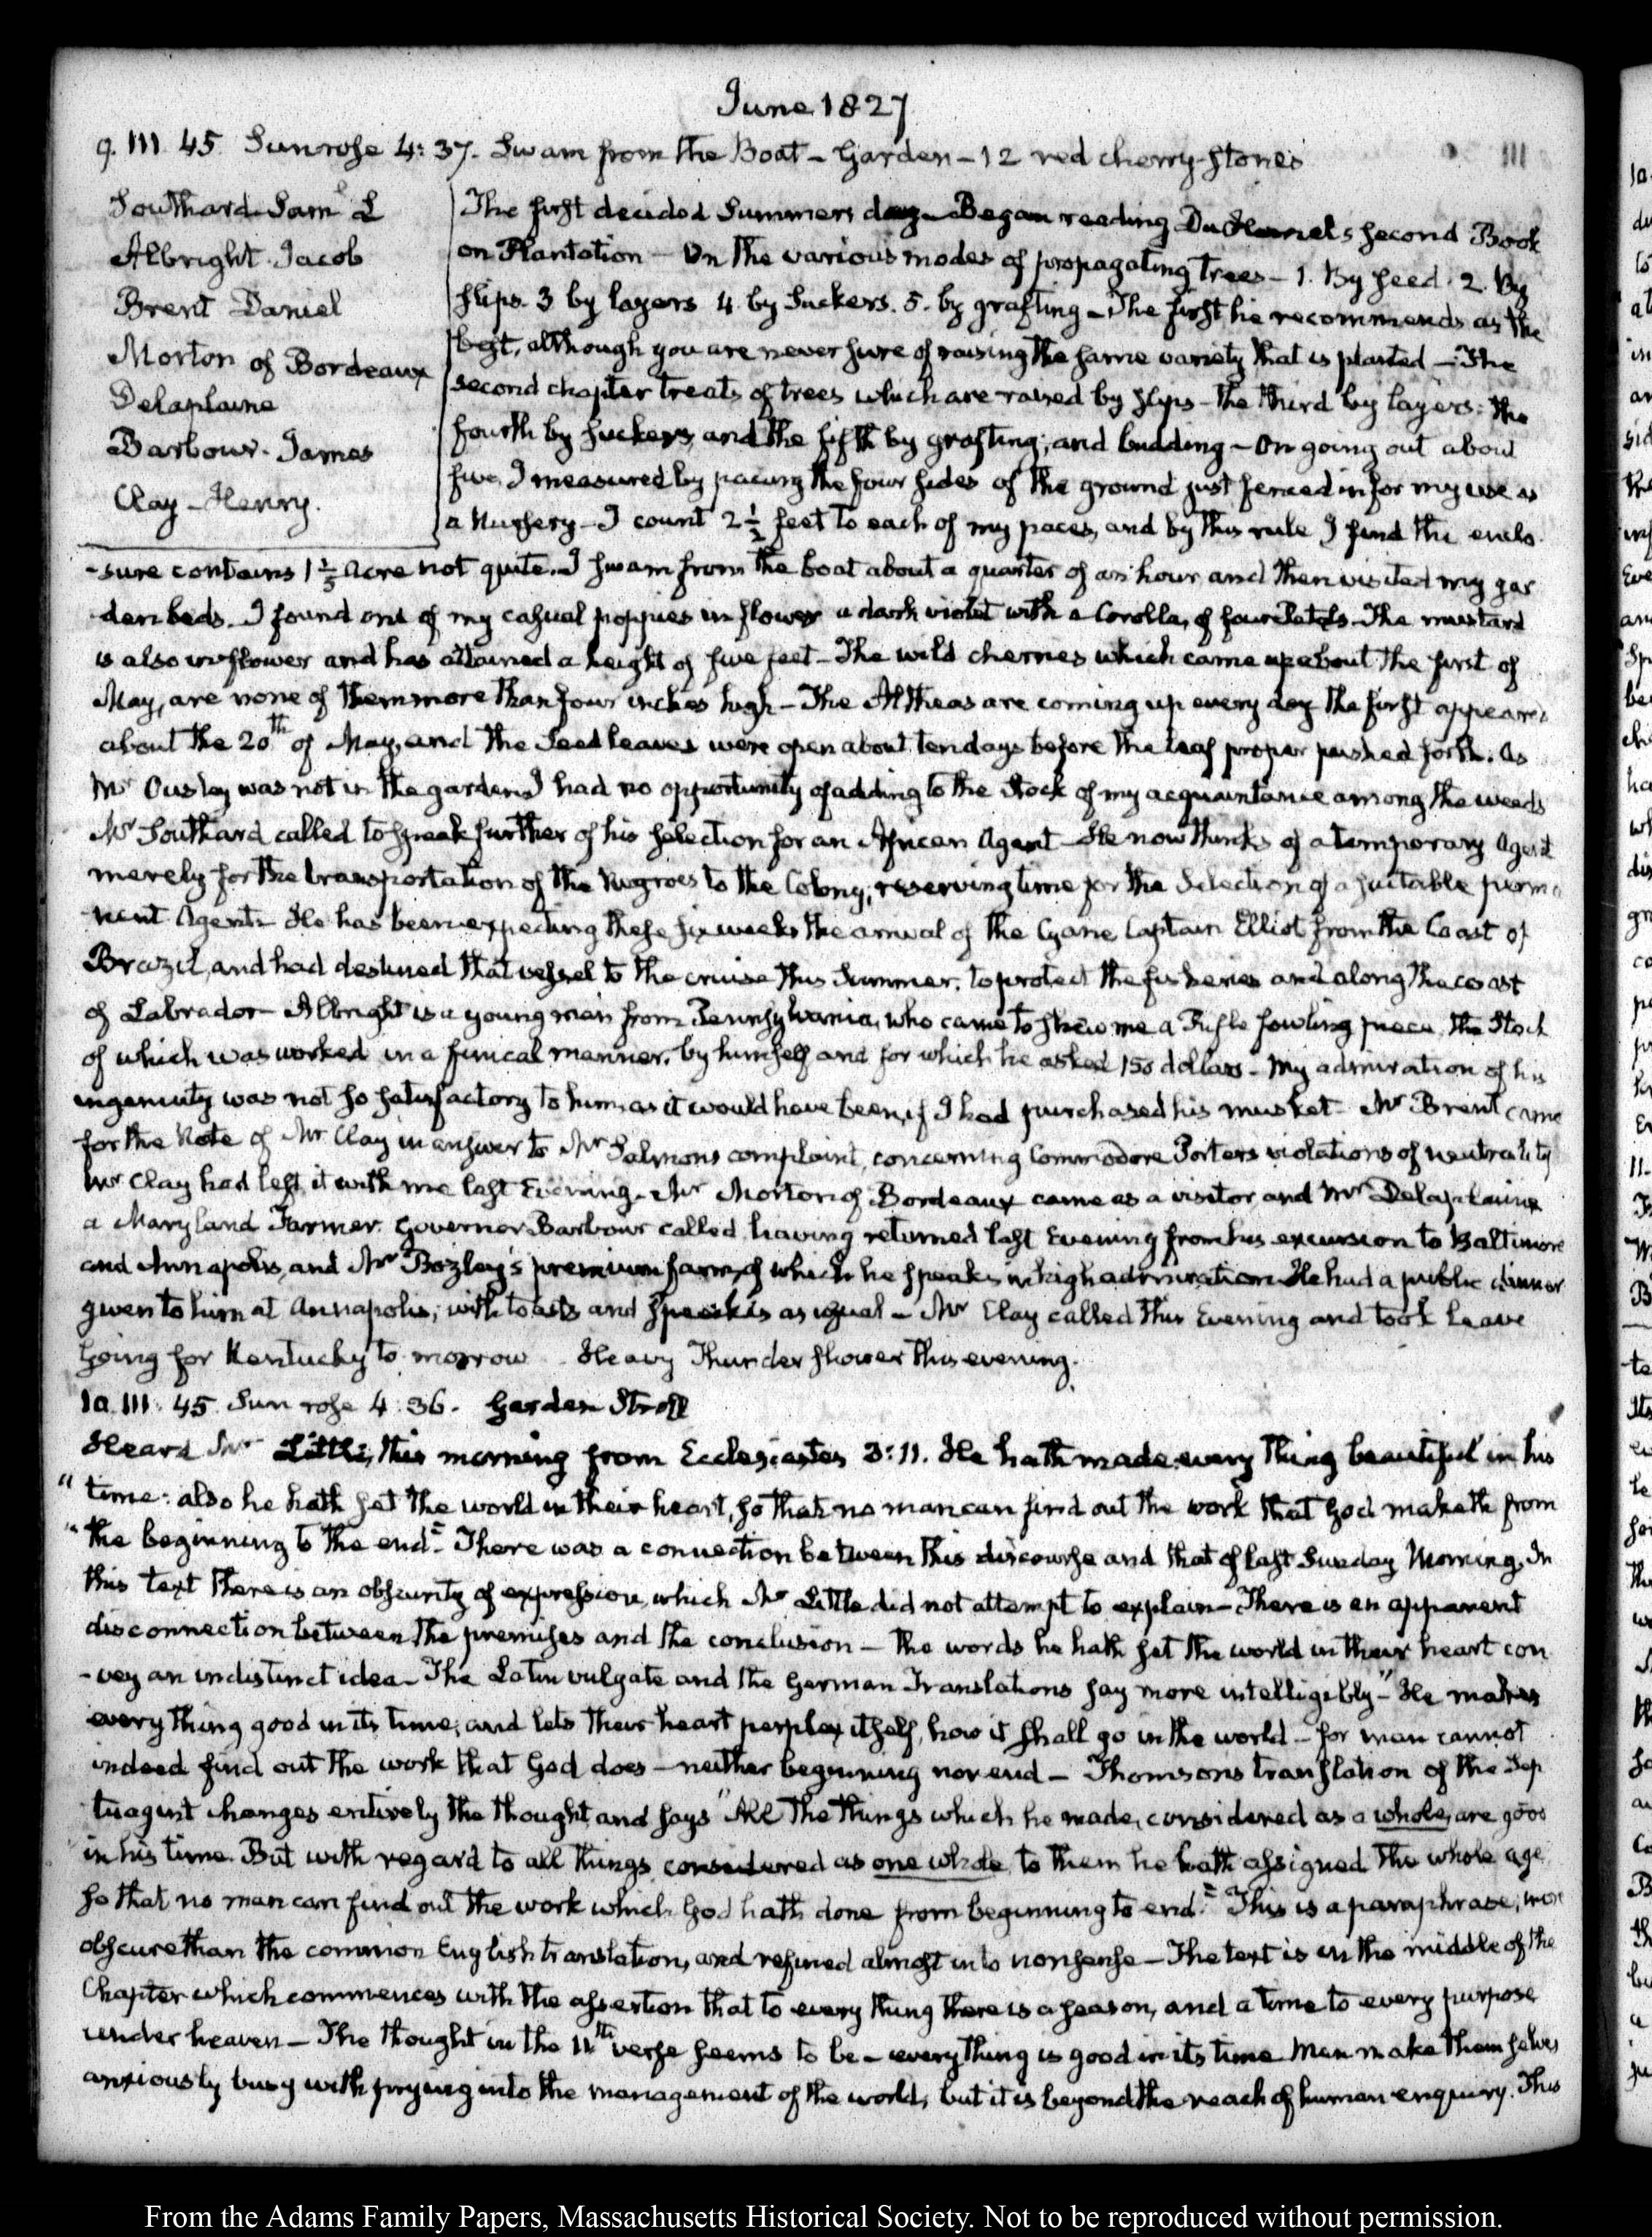 June 1827
9. III. 45. Sun rose 4: 37. Swam from the Boat – Garden – 12 red cherry-stones
III
Southard. Saml L
Albright. Jacob
Brent Daniel
Morton of Bordeaux
Delaplaine
Barbour. James
Clay – Henry.
The first decided Summers day – Began reading Du Hamel's second Book
on Plantation – On the various modes of propagating trees – 1. By seed. 2. By
slips. 3 by layers 4. by suckers. 5. by grafting – The first he recommends as the
best, although you are never sure of raising the same variety that is planted – The
second chapter treats of trees which are raised by slips – the third by layers: the
fourth by suckers, and the fifth by grafting; and budding – On going out about
five, I measured by pacing the four sides of the ground just fenced in for my use as
a nursery – I count 2 1/2 feet to each of my paces, and by this rule I find the enclo
-sure contains 1 1/5 acre not quite. I swam from the boat about a quarter of an hour and then visited my gar
den beds. I found one of my casual poppies in flower a dark violet with a Corolla, of four Petals. The mustard
is also in flower and has attained a height of five feet – The wild cherries which came up about the first of
May, are none of them more than four inches high – The Altheas are coming up every day the first appeared
about the 20th of May, and the Seed leaves were open about ten days before the leaf proper pushed forth. As
Mr Ousley was not in the garden I had no opportunity of adding to the stock of my acquaintance among the weeds
Mr Southard called to speak further of his selection for an African Agent – He now thinks of a temporary Agent
merely for the transportation of the Negroes to the Colony; reserving time for the Selection of a suitable perma
-nent Agent – He has been expecting these six weeks the arrival of the Cyane Captain Elliot from the Coast of
Brazil, and had destined that vessel to the cruise this Summer, to protect the fisheries and along the coast
of Labrador – Albright is a young man from Pennsylvania, who came to shew me a Rifle fowling piece, the Stock
of which was worked in a finical manner, by himself and for which he asked 150 dollars – My admiration of his
ingenuity was not so satisfactory to him, as it would have been, if I had purchased his musket – Mr Brent came
for the Note of Mr Clay in answer to Mr Salmons complaint, concerning Commodore Porters violations of neutrality
Mr Clay had left it with me last Evening. Mr Morton of Bordeaux came as a visitor and Mr Delaplaine
a Maryland Farmer. Governor Barbour called having returned last Evening from his excursion to Baltimore
and Annapolis, and Mr Bozley's premium farm, of which he speaks in high admiration He had a public dinner
given to him at Annapolis, with toasts and speeches as usual – Mr Clay called this Evening and took leave
going for Kentucky to morrow. Heavy Thunder shower this evening.
10. III: 45. Sun rose 4:36. Garden Stroll
Heard Mr Little, this morning from Ecclesiastes 3:11. He hath made every thing beautiful in his
"time: also he hath set the world in their heart, so that no man can find out the work that God maketh from
"the beginning to the end." There was a connection between this discourse and that of last Sunday Morning. In
this text there is an obscurity of expression, which Mr Little did not attempt to explain – There is an apparent
disconnection between the premises and the conclusion – The words he hath set the world in their heart con
-vey an indistinct idea – The Latin vulgate and the German Translations say more intelligibly – "He makes
every thing good in its time, and lets their heart perplex itself, how it shall go in the world – for man cannot
indeed find out the work that God does – neither beginning nor end – Thomsons translation of the Sep
tuagint changes entirely the thought, and says "All the things which he made, considered as a whole, are good
in his time. But with regard to all things considered as one whole, to them he hath assigned the whole age
so that no man can find out the work which God hath done from beginning to end." This is a paraphrase, more
obscure than the common English translation, and refined almost into nonsense – The text is in the middle of the
Chapter which commences with the assertion that to every thing there is a season, and a time to every purpose
under heaven – The thought in the 11th verse seems to be – every thing is good in its time Men make themselves
anxiously busy with prying into the management of the world, but it is beyond the reach of human enquiry. This
From the Adams Family Papers, Massachusetts Historical Society. Not to be reproduced without permission.